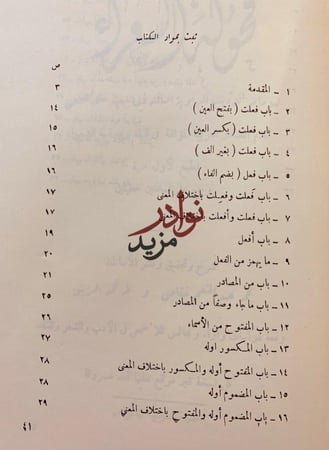 ثبت بمواد الكتاب
ص
١ – المقدمة ٣
٢ – باب فعلت ( بفتح العين ) ١٤
٣ – باب فعلت ( بكسر العين ) ١٥
٤ – باب فعلت ( بغير الف ) ١٦
٥ – باب فعل ( بضم الفاء ) ١٦
٦ – باب فَعلت وفعِلت باختلاف المعنى ١٧
٧ – باب فعلت وأفعلت باختلاف المعنى ١٧
٨ – باب أفعل
٩ – ما يهمز من الفعل ٢٠
١٠ – باب من المصادر ٢٠
١١ – باب ما جاء وصفاً من المصادر ٢١
١٢ – باب المفتوح من الأسماء
١٣ – باب المكسور اوله ٢٧
١٤ – باب المفتوح أوله والمكسور باختلاف المعنى ٢٨
١٥ – باب المضموم أوله ٢٨
١٦ – باب المضموم أوله والمفتوح باختلاف المعني ٢٩
٤١
نوادر
مزيد